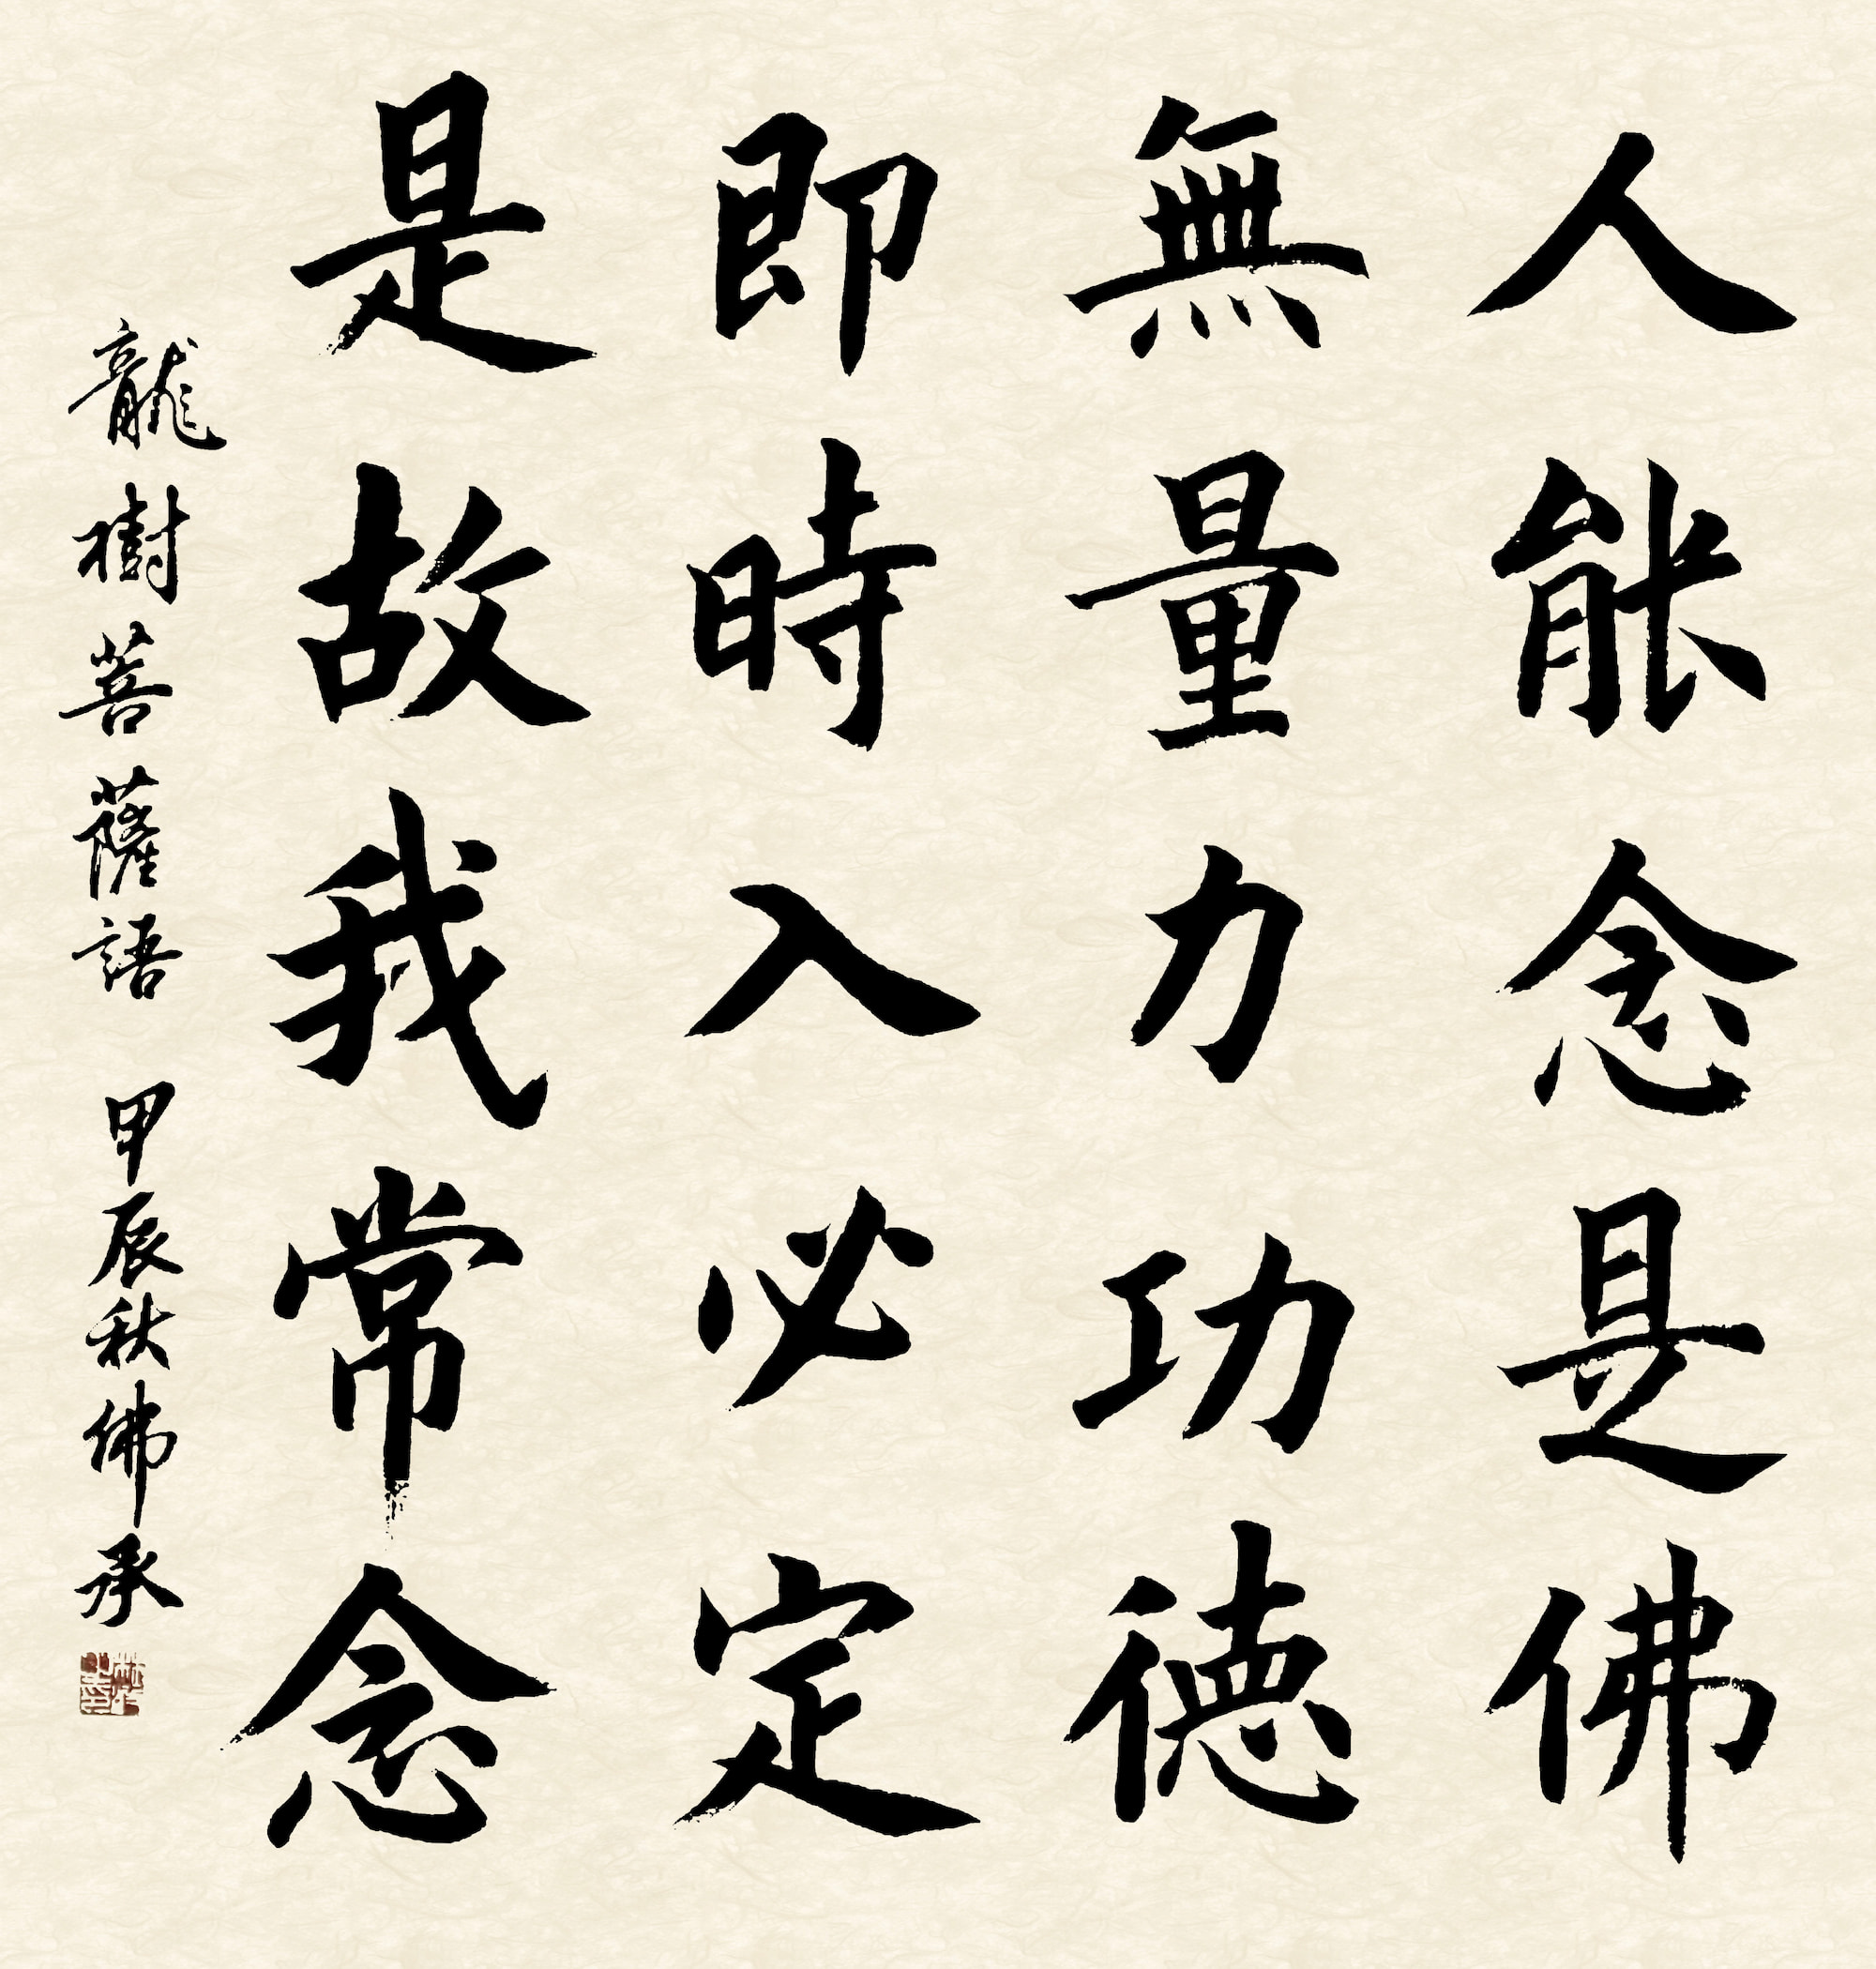 人能念是佛
無量力功德
即時入必定
是故我常念
龍樹菩薩語 甲辰秋佛承